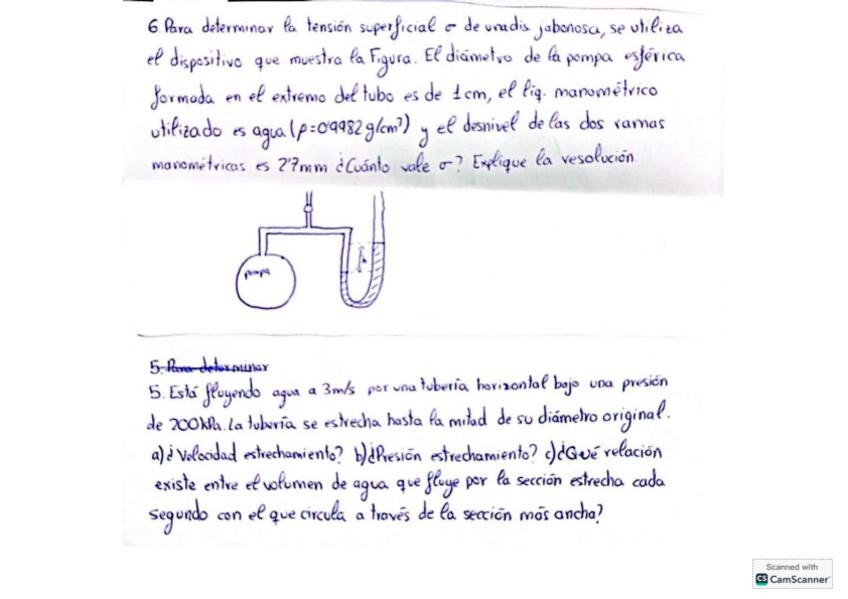 6. Para determinar la tensión superficial σ de una dis jabonosa, se utiliza
el dispositivo que muestra la Figura. El diámetro de la pompa esférica
formada en el extremo del tubo es de 1cm, el líq. manométrico
utilizado es agua (ρ=0'9982 g/cm³) y el desnivel de las dos ramas
manométricas es 2'7mm ¿Cuánto vale σ? Explique la resolución
pompa
h
5. Para determinar
5. Está fluyendo agua a 3m/s por una tubería horizontal bajo una presión
de 200kPa. La tubería se estrecha hasta la mitad de su diámetro original.
a) ¿Velocidad estrechamiento? b) ¿Presión estrechamiento? c) ¿Qué relación
existe entre el volumen de agua que fluye por la sección estrecha cada
segundo con el que circula a través de la sección más ancha?
Scanned with
CS CamScanner